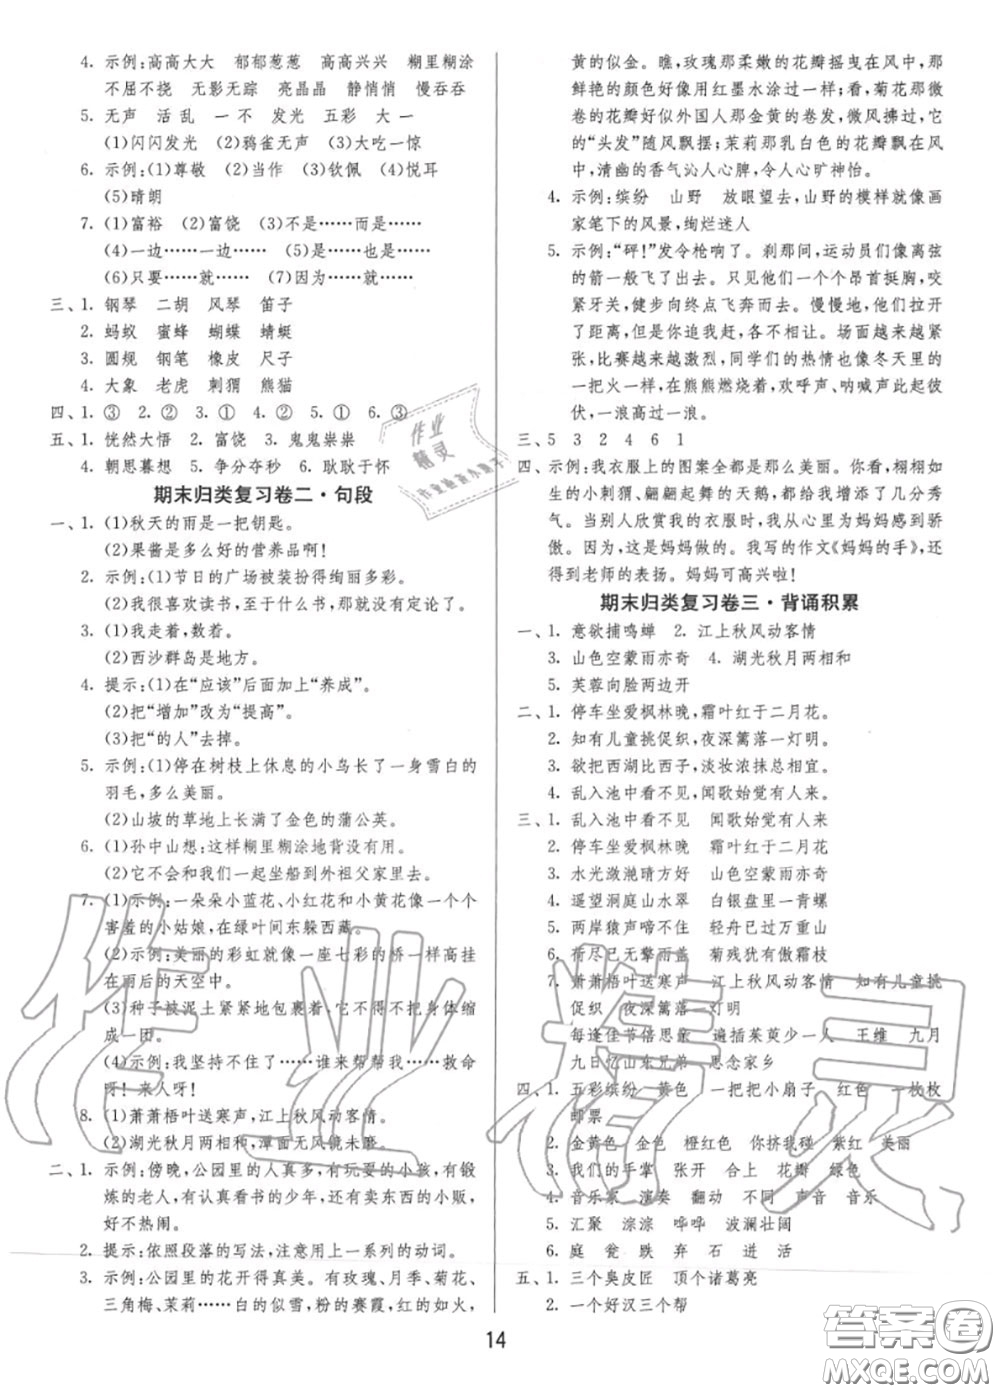 4. 示例:高高大大 郁郁葱葱 高高兴兴 糊里糊涂
不屈不挠 无影无踪 亮晶晶 静悄悄 慢吞吞
5. 无声 活乱 一不 发光 五彩 大一
(1)闪闪发光 (2)鸦雀无声 (3)大吃一惊
6. 示例:(1)尊敬 (2)当作 (3)钦佩 (4)悦耳
(5)晴朗
7. (1)富裕 (2)富饶 (3)不是……而是……
(4)一边……一边…… (5)是……也是……
(6)只要……就…… (7)因为……就……
三、1. 钢琴 二胡 风琴 笛子
2. 蚂蚁 蜜蜂 蝴蝶 蜻蜓
3. 圆规 钢笔 橡皮 尺子
4. 大象 老虎 刺猬 熊猫
四、1. ③ 2. ② 3. ① 4. ② 5. ① 6. ③
五、1. 恍然大悟 2. 富饶 3. 鬼鬼祟祟
4. 朝思暮想 5. 争分夺秒 6. 耿耿于怀
期末归类复习卷二·句段
一、1. (1)秋天的雨是一把钥匙。
(2)果酱是多么好的营养品啊!
2. 示例:(1)节日的广场被装扮得绚丽多彩。
(2)我很喜欢读书,至于什么书,那就没有定论了。
3. (1)我走着,数着。
(2)西沙群岛是地方。
4. 提示:(1)在“应该”后面加上“养成”。
(2)把“增加”改为“提高”。
(3)把“的人”去掉。
5. 示例:(1)停在树枝上休息的小鸟长了一身雪白的
羽毛,多么美丽。
(2)山坡的草地上长满了金色的蒲公英。
6. (1)孙中山想:这样糊里糊涂地背没有用。
(2)它不会和我们一起坐船到外祖父家里去。
7. (1)示例:一朵朵小蓝花、小红花和小黄花像一个个
害羞的小姑娘,在绿叶间东躲西藏。
(2)示例:美丽的彩虹就像一座七彩的桥一样高挂
在雨后的天空中。
(3)种子被泥土紧紧地包裹着,它不得不把身体缩
成一团。
(4)示例:我坚持不住了……谁来帮帮我……救命
呀!来人呀!
8. (1)萧萧梧叶送寒声,江上秋风动客情。
(2)湖光秋月两相和,潭面无风镜未磨。
二、1. 示例:傍晚,公园里的人真多,有玩耍的小孩,有锻
炼的老人,有认真看书的少年,还有卖东西的小贩,
好不热闹。
2. 提示:依照段落的写法,注意用上一系列的动词。
3. 示例:公园里的花开得真美。有玫瑰、月季、菊花、
三角梅、茉莉……白的似雪,粉的赛霞,红的如火,
黄的似金。瞧,玫瑰那柔嫩的花瓣摇曳在风中,那
鲜艳的颜色好像用红墨水涂过一样;看,菊花那微
卷的花瓣好似外国人那金黄的卷发,微风拂过,它
的“头发”随风飘摆;茉莉那乳白色的花瓣飘在风
中,清幽的香气沁人心脾,令人心旷神怡。
4. 示例:缤纷 山野 放眼望去,山野的模样就像画
家笔下的风景,绚烂迷人
5. 示例:“砰!”发令枪响了。刹那间,运动员们像离弦
的箭一般飞了出去。只见他们一个个昂首挺胸,咬
紧牙关,健步向终点飞奔而去。慢慢地,他们拉开
了距离,但是你追我赶,各不相让。场面越来越紧
张,比赛越来越激烈,同学们的热情也像冬天里的
一把火一样,在熊熊燃烧着,欢呼声、呐喊声此起彼
伏,一浪高过一浪。
三、5 3 2 4 6 1
四、示例:我衣服上的图案全都是那么美丽。看,栩栩如
生的小刺猬、翩翩起舞的天鹅,都给我增添了几分秀
气。当别人欣赏我的衣服时,我从心里为妈妈感到骄
傲。因为,这是妈妈做的。我写的作文《妈妈的手》,还
得到老师的表扬。妈妈可高兴啦!
期末归类复习卷三·背诵积累
一、1. 意欲捕鸣蝉 2. 江上秋风动客情
3. 山色空蒙雨亦奇 4. 湖光秋月两相和
5. 芙蓉向脸两边开
二、1. 停车坐爱枫林晚,霜叶红于二月花。
2. 知有儿童挑促织,夜深篱落一灯明。
3. 欲把西湖比西子,淡妆浓抹总相宜。
4. 乱入池中看不见,闻歌始觉有人来。
三、1. 乱入池中看不见 闻歌始觉有人来
2. 停车坐爱枫林晚 霜叶红于二月花
3. 水光潋滟晴方好 山色空蒙雨亦奇
4. 遥望洞庭山水翠 白银盘里一青螺
5. 两岸猿声啼不住 轻舟已过万重山
6. 荷尽已无擎雨盖 菊残犹有傲霜枝
7. 萧萧梧叶送寒声 江上秋风动客情 知有儿童挑
促织 夜深篱落一灯明
每逢佳节倍思亲 遍插茱萸少一人 王维 九月
九日忆山东兄弟 思念家乡
四、1. 五彩缤纷 黄色 一把把小扇子 红色 一枚枚
邮票
2. 金黄色 金色 橙红色 你挤我碰 紫红 美丽
3. 我们的手掌 张开 合上 花瓣 绿色
4. 音乐家 演奏 翻动 不同 声音 音乐
5. 汇聚 淙淙 哗哗 波澜壮阔
6. 庭 瓮 跌 弃 石 迸 活
五、1. 三个臭皮匠 顶个诸葛亮
2. 一个好汉三个帮
14
作业精灵
作业精灵
答案圈
MXQE.COM